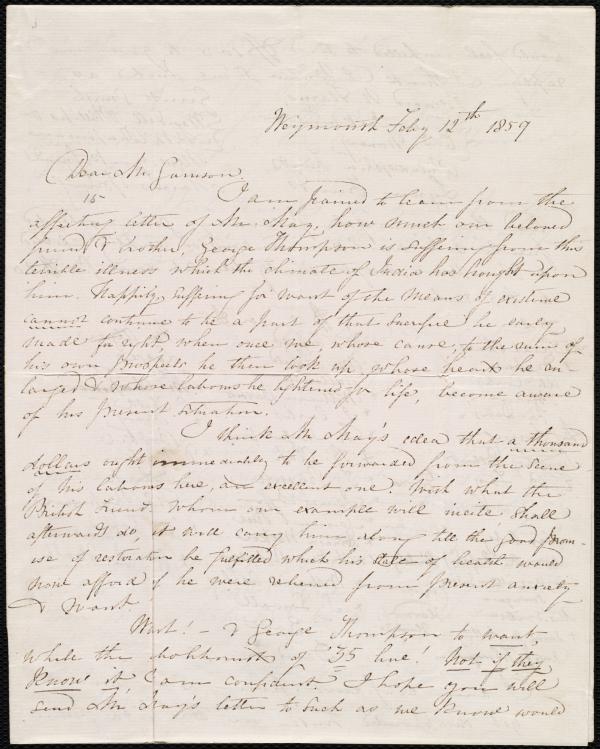 Weymouth Feby 12th 1859
Dear Mr. Garrison.
15
I am pained to learn from the
affecting letter of Mr. May, how much our beloved
friend & brother, George Thompson is suffering from this
terrible illness which the climate of India has brought upon
him. Happily, suffering for want of the means of existence
cannot continue to be a part of that sacrifice he early
made for right, when once we, whose cause, to the ruin of
his own prospects he then took up, whose hearts he en-
larged & whose labours he lightened for life, become aware
of his present situation.
I think Mr May's idea that a thousand
dollars ought immediately to be forwarded from the scene
of his labours here, an excellent one. With what the
British friends whom our example will incite shall
afterwards do, it will carry him along till the good prom-
ise of restoration be fulfilled which his state of health would
now afford if he were relieved from present anxiety
& want.
Want! - & George Thompson to want,
while the of '35 live! Not if they
know it I am confident. I hope you will
send Mr May's letter to such as we know would